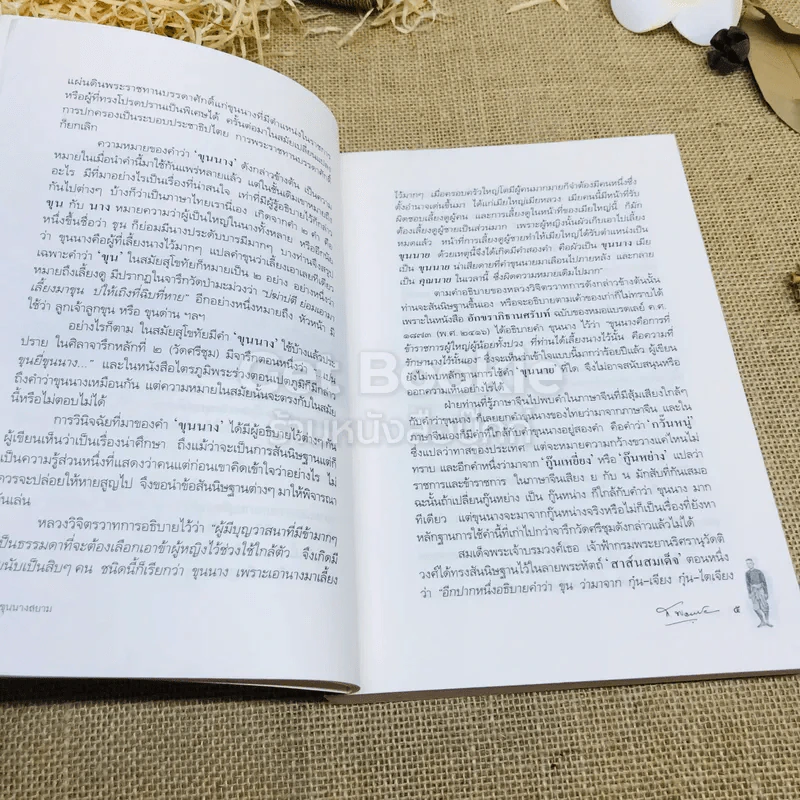 แผ่นดินพระราชทานบรรดาศักดิ์แก่ขุนนางที่มีตำแหน่งในราชการ
หรือผู้ที่ทรงโปรดปรานเป็นพิเศษได้ ครั้นต่อมาในสมัยเปลี่ยนแปลง
การปกครองเป็นระบอบประชาธิปไตย การพระราชทานบรรดาศักดิ์
ก็ยกเลิก
ความหมายของคำว่า 'ขุนนาง' ดังกล่าวข้างต้น เป็นความ
หมายในเมื่อนำคำนี้มาใช้กันแพร่หลายแล้ว แต่ในชั้นเดิมเขาหมายถึง
อะไร มีที่มาอย่างไรเป็นเรื่องที่น่าสนใจ เท่าที่มีผู้อธิบายไว้ก็กล่าว
กันไปต่างๆ บ้างก็ว่าเป็นภาษาไทยเรานี่เอง เกิดจากคำ ๒ คำ คือ
ขุน กับ นาง หมายความว่าผู้เป็นใหญ่ในนางทั้งหลาย หรืออีกนัย
หนึ่งขึ้นชื่อว่า ขุน ก็ย่อมมีนางประดับบารมีมากๆ บางท่านจึงสรุป
ว่า ขุนนางคือผู้ที่เลี้ยงนางไว้มากๆ แปลคำขุนว่าเลี้ยงเอาเลยทีเดียว
เฉพาะคำว่า 'ขุน' ในสมัยสุโขทัยก็หมายเป็น ๒ อย่าง อย่างหนึ่ง
หมายถึงเลี้ยงดู มีปรากฏในจารึกวัดป่ามะม่วงว่า "ปฆ่าปตี ย่อมเอา
เลี้ยงมาขุน ปให้เถิงที่ฉิบที่หาย" อีกอย่างหนึ่งหมายถึง หัวหน้า มี
ใช้ว่า ลูกเจ้าลูกขุน หรือ ขุนด่าน ฯลฯ
อย่างไรก็ตาม ในสมัยสุโขทัยมีคำ 'ขุนนาง' ใช้บ้างแล้วประ
ปราย ในศิลาจารึกหลักที่ ๒ (วัดศรีชุม) มีจารึกตอนหนึ่งว่า "เป็น
ขุนยี่ขุนนาง..." และในหนังสือไตรภูมิพระร่วงตอนเปตภูมิก็มีกล่าว
ถึงคำว่าขุนนางเหมือนกัน แต่ความหมายในสมัยนั้นจะตรงกับในสมัย
นี้หรือไม่ตอบไม่ได้
การวินิจฉัยที่มาของคำ 'ขุนนาง' ได้มีผู้อธิบายไว้ต่างๆ กัน
ผู้เขียนเห็นว่าเป็นเรื่องน่าศึกษา ถึงแม้ว่าจะเป็นการสันนิษฐานแต่ก็
เป็นความรู้ส่วนหนึ่งที่แสดงว่าคนแต่ก่อนเขาคิดเข้าใจว่าอย่างไร ไม่
ควรจะปล่อยให้หายสูญไป จึงขอนำข้อสันนิษฐานต่างๆ มาให้พิจารณา
กันเล่น
หลวงวิจิตรวาทการอธิบายไว้ว่า "ผู้มีบุญวาสนาที่มีข้ามากๆ
เป็นธรรมดาที่จะต้องเลือกเอาข้าผู้หญิงไว้ช่วงใช้ใกล้ตัว จึงเกิดมี
นับเป็นสิบๆ คน ชนิดนี้ก็เรียกว่า ขุนนาง เพราะเอานางมาเลี้ยง
ขุนนางสยาม
ไว้มากๆ เมื่อครอบครัวใหญ่โตมีผู้คนมากมายก็จำต้องมีคนหนึ่งซึ่ง
ตั้งอำนาจเด่นขึ้นมา ได้แก่เมียใหญ่เมียหลวง เมียคนนี้มีหน้าที่รับ
ผิดชอบเลี้ยงดูผู้คน และการเลี้ยงดูในหน้าที่ของเมียใหญ่นี้ ก็มัก
ต้องเลี้ยงดูผู้ชายเป็นส่วนมาก เพราะผู้หญิงนั้นผัวเก็บเอาไปเลี้ยง
หมดแล้ว หน้าที่การเลี้ยงดูผู้ชายทำให้เมียใหญ่ได้รับตำแหน่งเป็น
ขุนนาย ด้วยเหตุนี้จึงได้เกิดมีคำสองคำ คือผัวเป็น ขุนนาง เมีย
เป็น ขุนนาย น่าเสียดายที่คำขุนนายมาเลือนไปภายหลัง และกลาย
เป็น คุณนาย ในเวลานี้ ซึ่งผิดความหมายเดิมไปมาก"
ตามคำอธิบายของหลวงวิจิตรวาทการดังกล่าวข้างต้นนั้น
ท่านจะสันนิษฐานขึ้นเอง หรือจะอธิบายตามเค้าของเก่าก็ไม่ทราบได้
เพราะในหนังสือ อักขราภิธานศรับท์ ฉบับของหมอแบรดเลย์ ค.ศ.
๑๘๗๓ (พ.ศ. ๒๔๑๖) ได้อธิบายคำ ขุนนาง ไว้ว่า "ขุนนางคือการที่
ข้าราชการผู้ใหญ่ผู้น้อยทั้งปวง ที่ท่านได้เลี้ยงนางไว้นั้น คือความที่
รักษานางไว้นั้นเอง" ซึ่งจะเห็นว่าเข้าใจในแบบนี้มากว่าร้อยปีแล้ว ผู้เขียน
ยังไม่พบหลักฐานการใช้คำ 'ขุนนาย' ที่ใด จึงไม่อาจสนับสนุนหรือ
ออกความเห็นอย่างไรได้
ฝ่ายท่านที่รู้ภาษาจีนไปพบคำในภาษาจีนที่มีสุ้มเสียงใกล้ๆ
กับคำว่า ขุนนาง ก็เลยยกคำขุนนางของไทยว่ามาจากภาษาจีน และใน
ภาษาจีนเองก็มีคำที่ใกล้กับคำขุนนางอยู่สองคำ คือคำว่า 'กวั๋นหนู'
ซึ่งแปลว่าทาสของประเทศ แต่จะหมายความกว้างขวางแค่ไหนไม่
ทราบ และอีกคำหนึ่งว่ามาจาก 'กู๊นเหยี่ยง' หรือ 'กู๊นหย่าง' แปลว่า
ราชการและข้าราชการ ในภาษาจีนเสียง ย กับ น มักสับที่กันเสมอ
ฉะนั้นถ้าเปลี่ยนกู๊นหย่าง เป็น กู๊นหน่าง ก็ใกล้กับคำว่า ขุนนาง มาก
ทีเดียว แต่ขุนนางจะมาจากกู๊นหน่างจริงหรือไม่ก็เป็นเรื่องที่ยังหา
หลักฐานการใช้คำนี้ที่เก่าไปกว่าจารึกวัดศรีชุมดังกล่าวแล้วไม่ได้
สมเด็จพระเจ้าบรมวงศ์เธอ เจ้าฟ้ากรมพระยานริศรานุวัดติ
วงศ์ได้ทรงสันนิษฐานไว้ในลายพระหัตถ์ 'สาส์นสมเด็จ' ตอนหนึ่ง
ว่า "อีกปากหนึ่งอธิบายคำว่า ขุน ว่ามาจาก กุ๋น-เจียง กุ๋น-โตเจียง
๕
Got Bookie
ร้านหนังสือมือสอง